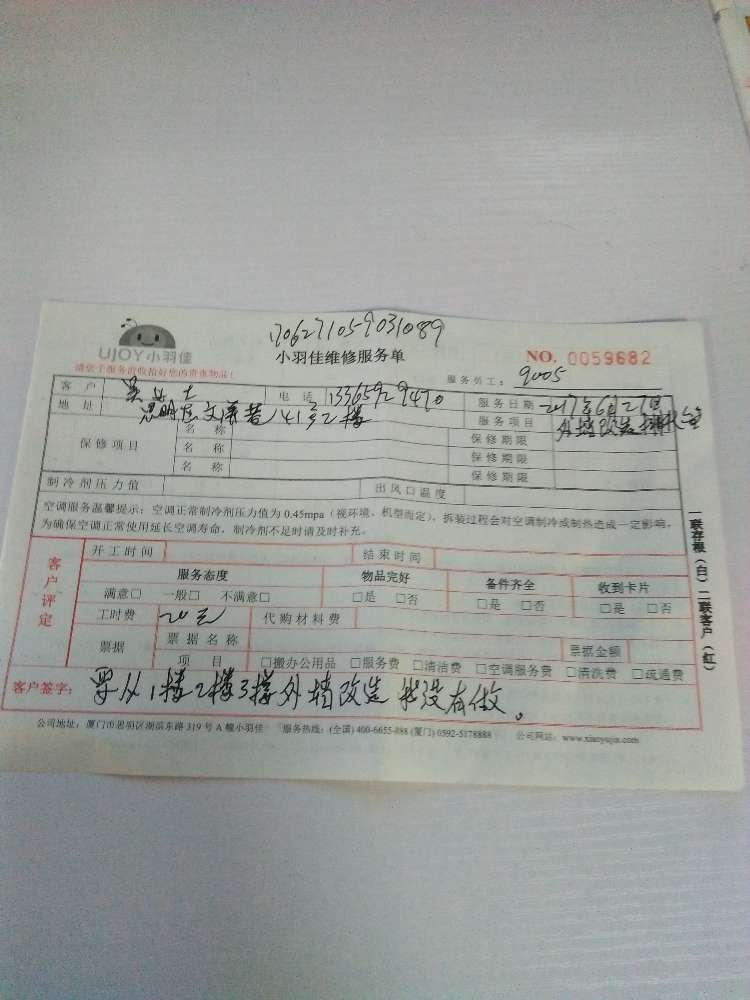 1706271059031089
UJOY小羽佳
小羽佳维修服务单
NO. 0059682
请您于服务前收拾好您的贵重物品!
服务员工: 9005
客户 吴女士 电话 13365929470 服务日期 2017年6月27日
地址 思明区文 41号2楼 服务项目 外墙改造排
保修项目 名称 保修期限
名称 保修期限
名称 保修期限
制冷剂压力值 出风口温度
空调服务温馨提示:空调正常制冷剂压力值为 0.45mpa(视环境、机型而定),拆装过程会对空调制冷或制热造成一定影响,
为确保空调正常使用延长空调寿命,制冷剂不足时请及时补充。
客户评定
开工时间 结束时间
服务态度 物品完好 备件齐全 收到卡片
满意□ 一般□ 不满意□ □是 □否 □是 □否 □是 □否
工时费 20元 代购材料费
票据 票据名称 票据金额
项目 □搬办公用品 □服务费 □清洁费 □空调服务费 □清洗费 □疏通费
客户签字: 要从1楼2楼3楼外墙改造 我没有做。
公司地址:厦门市思明区湖滨东路 319 号 A 幢小羽佳 服务热线:(全国) 400-6655-888 (厦门) 0592-5178888 公司网站:www.xiaoyujia.com
一联存根(白)二联客户(红)